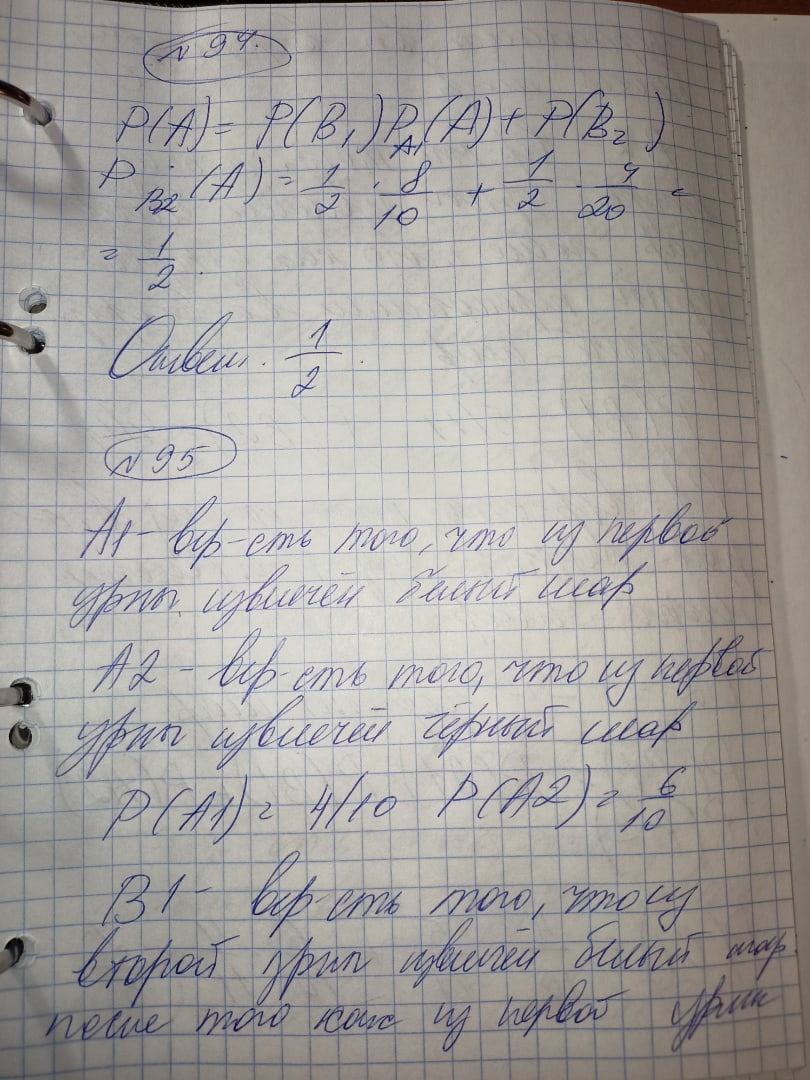 №94.
P(A) = P(B₁)P_A₁(A) + P(B₂)
P_B2(A) = 1/2 · 8/10 + 1/2 · 4/20 =
= 1/2.
Ответ. 1/2.
№95
A1 – вер-сть того, что из первой
урны извлечён белый шар
A2 – вер-сть того, что из первой
урны извлечён чёрный шар
P(A1) = 4/10 P(A2) = 6/10
B1 – вер-сть того, что из
второй урны извлечён белый шар
после того как из первой урны